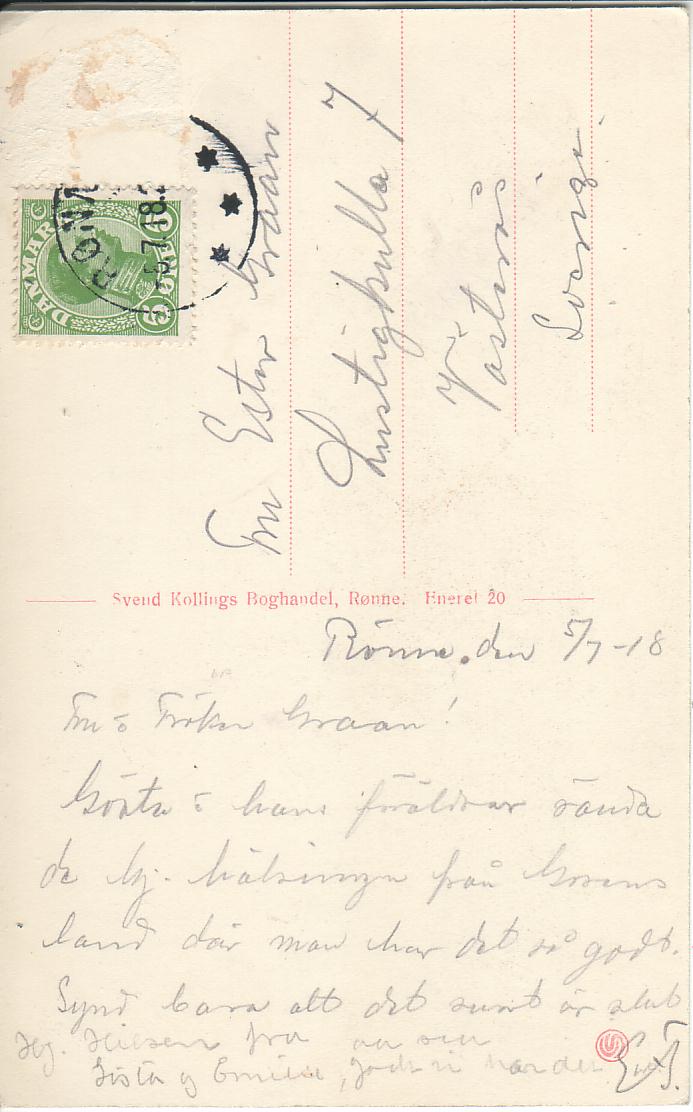 DANMARK
RØNNE
-5.7.18.
Fru Ester Graan
Lustigkulla 7
Västerås
Sverige.
Svend Kollings Boghandel, Rønne. Eneret 20
Rönne. den 5/7-18
Fru o Fröken Graan!
Gösta o hans föräldrar sända
de hj. hälsningar från Grisens
land där man har det så godt.
Synd bara att det snart är slut
Hej. Hilsen fra
Gösta og Emilie, godt vi har det